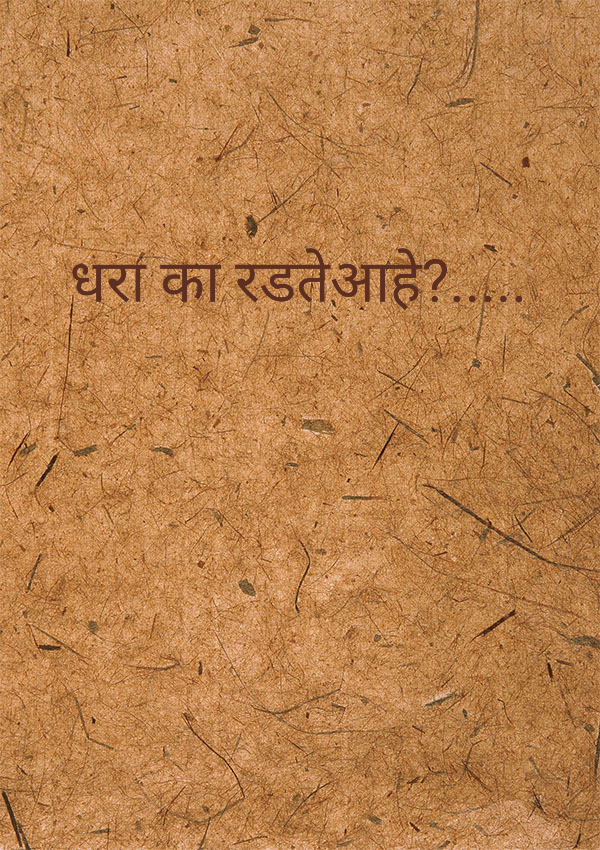 धरा का रडतेआहे?.....